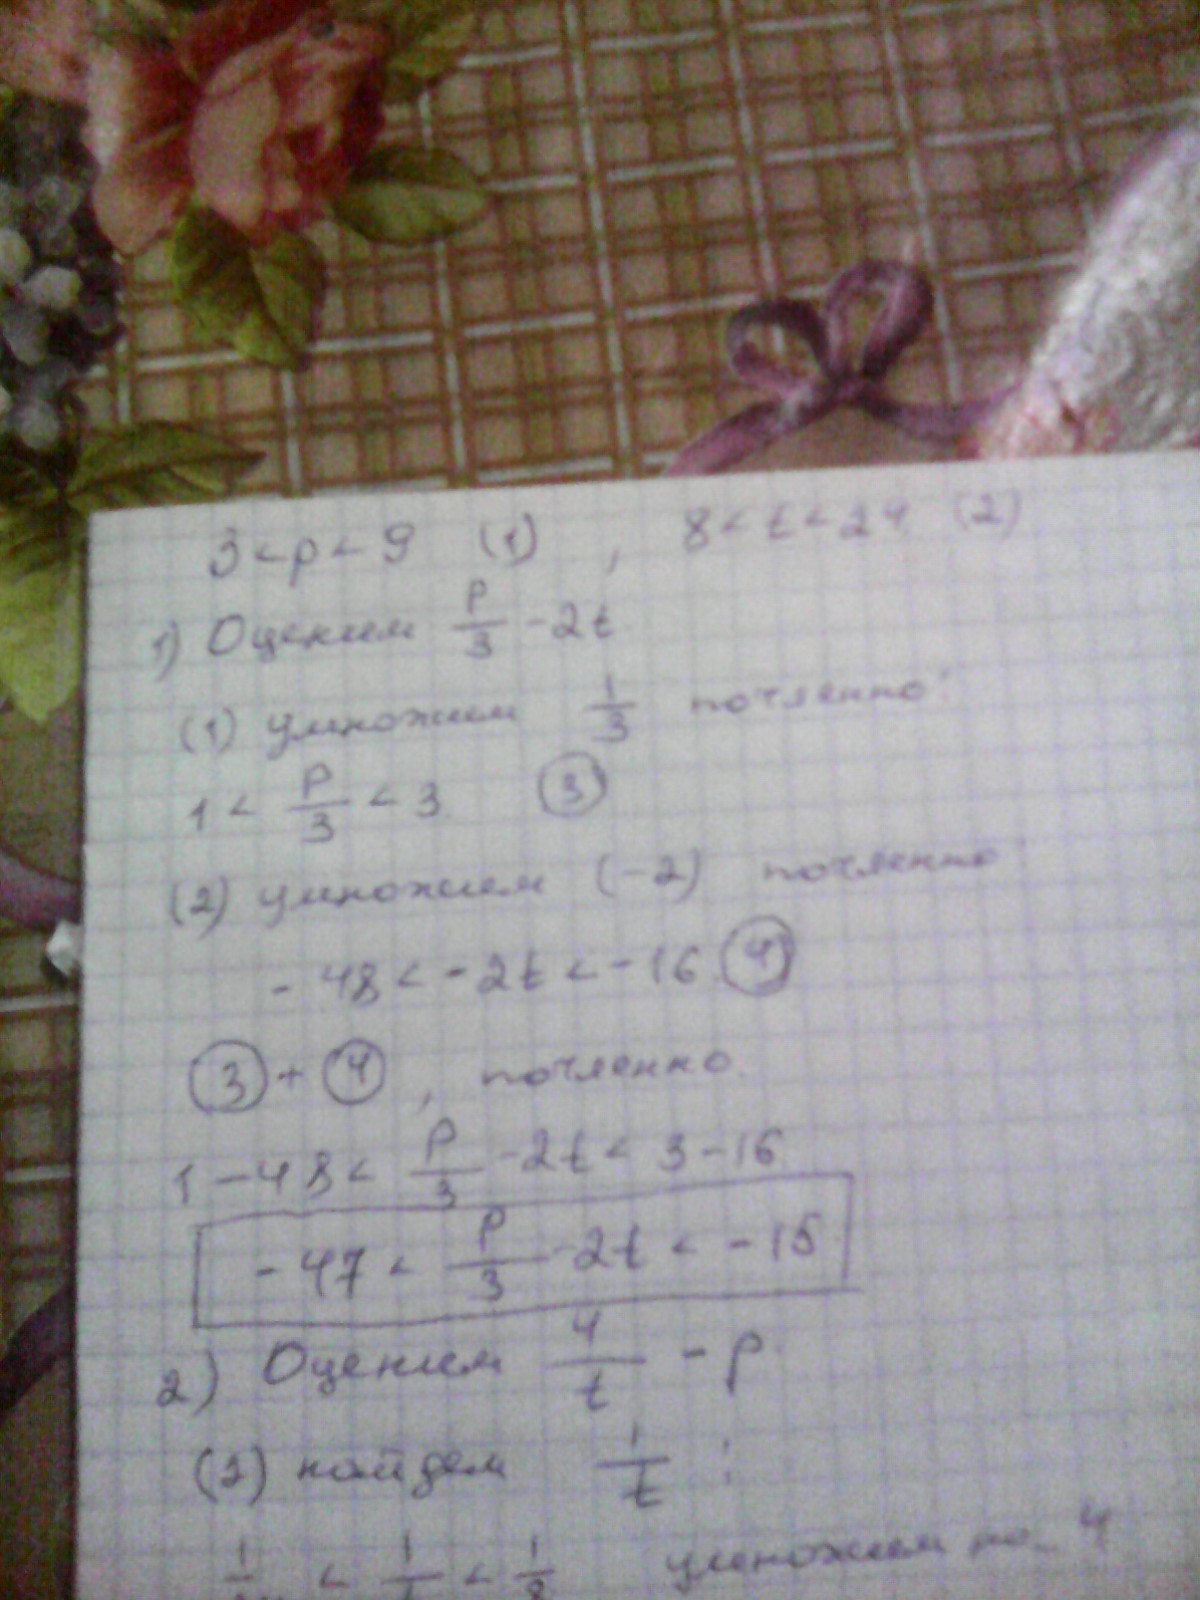 3 < p < 9 (1) , 8 < t < 24 (2)
1) Оценим p/3 - 2t
(1) умножим 1/3 почленно:
1 < p/3 < 3 (3)
(2) умножим (-2) почленно:
- 48 < - 2t < - 16 (4)
(3) + (4) , почленно.
1 - 48 < p/3 - 2t < 3 - 16
- 47 < p/3 - 2t < - 15
2) Оценим 4/t - p
(2) найдем 1/t :
< 1/t < 1/8 умножим на 4